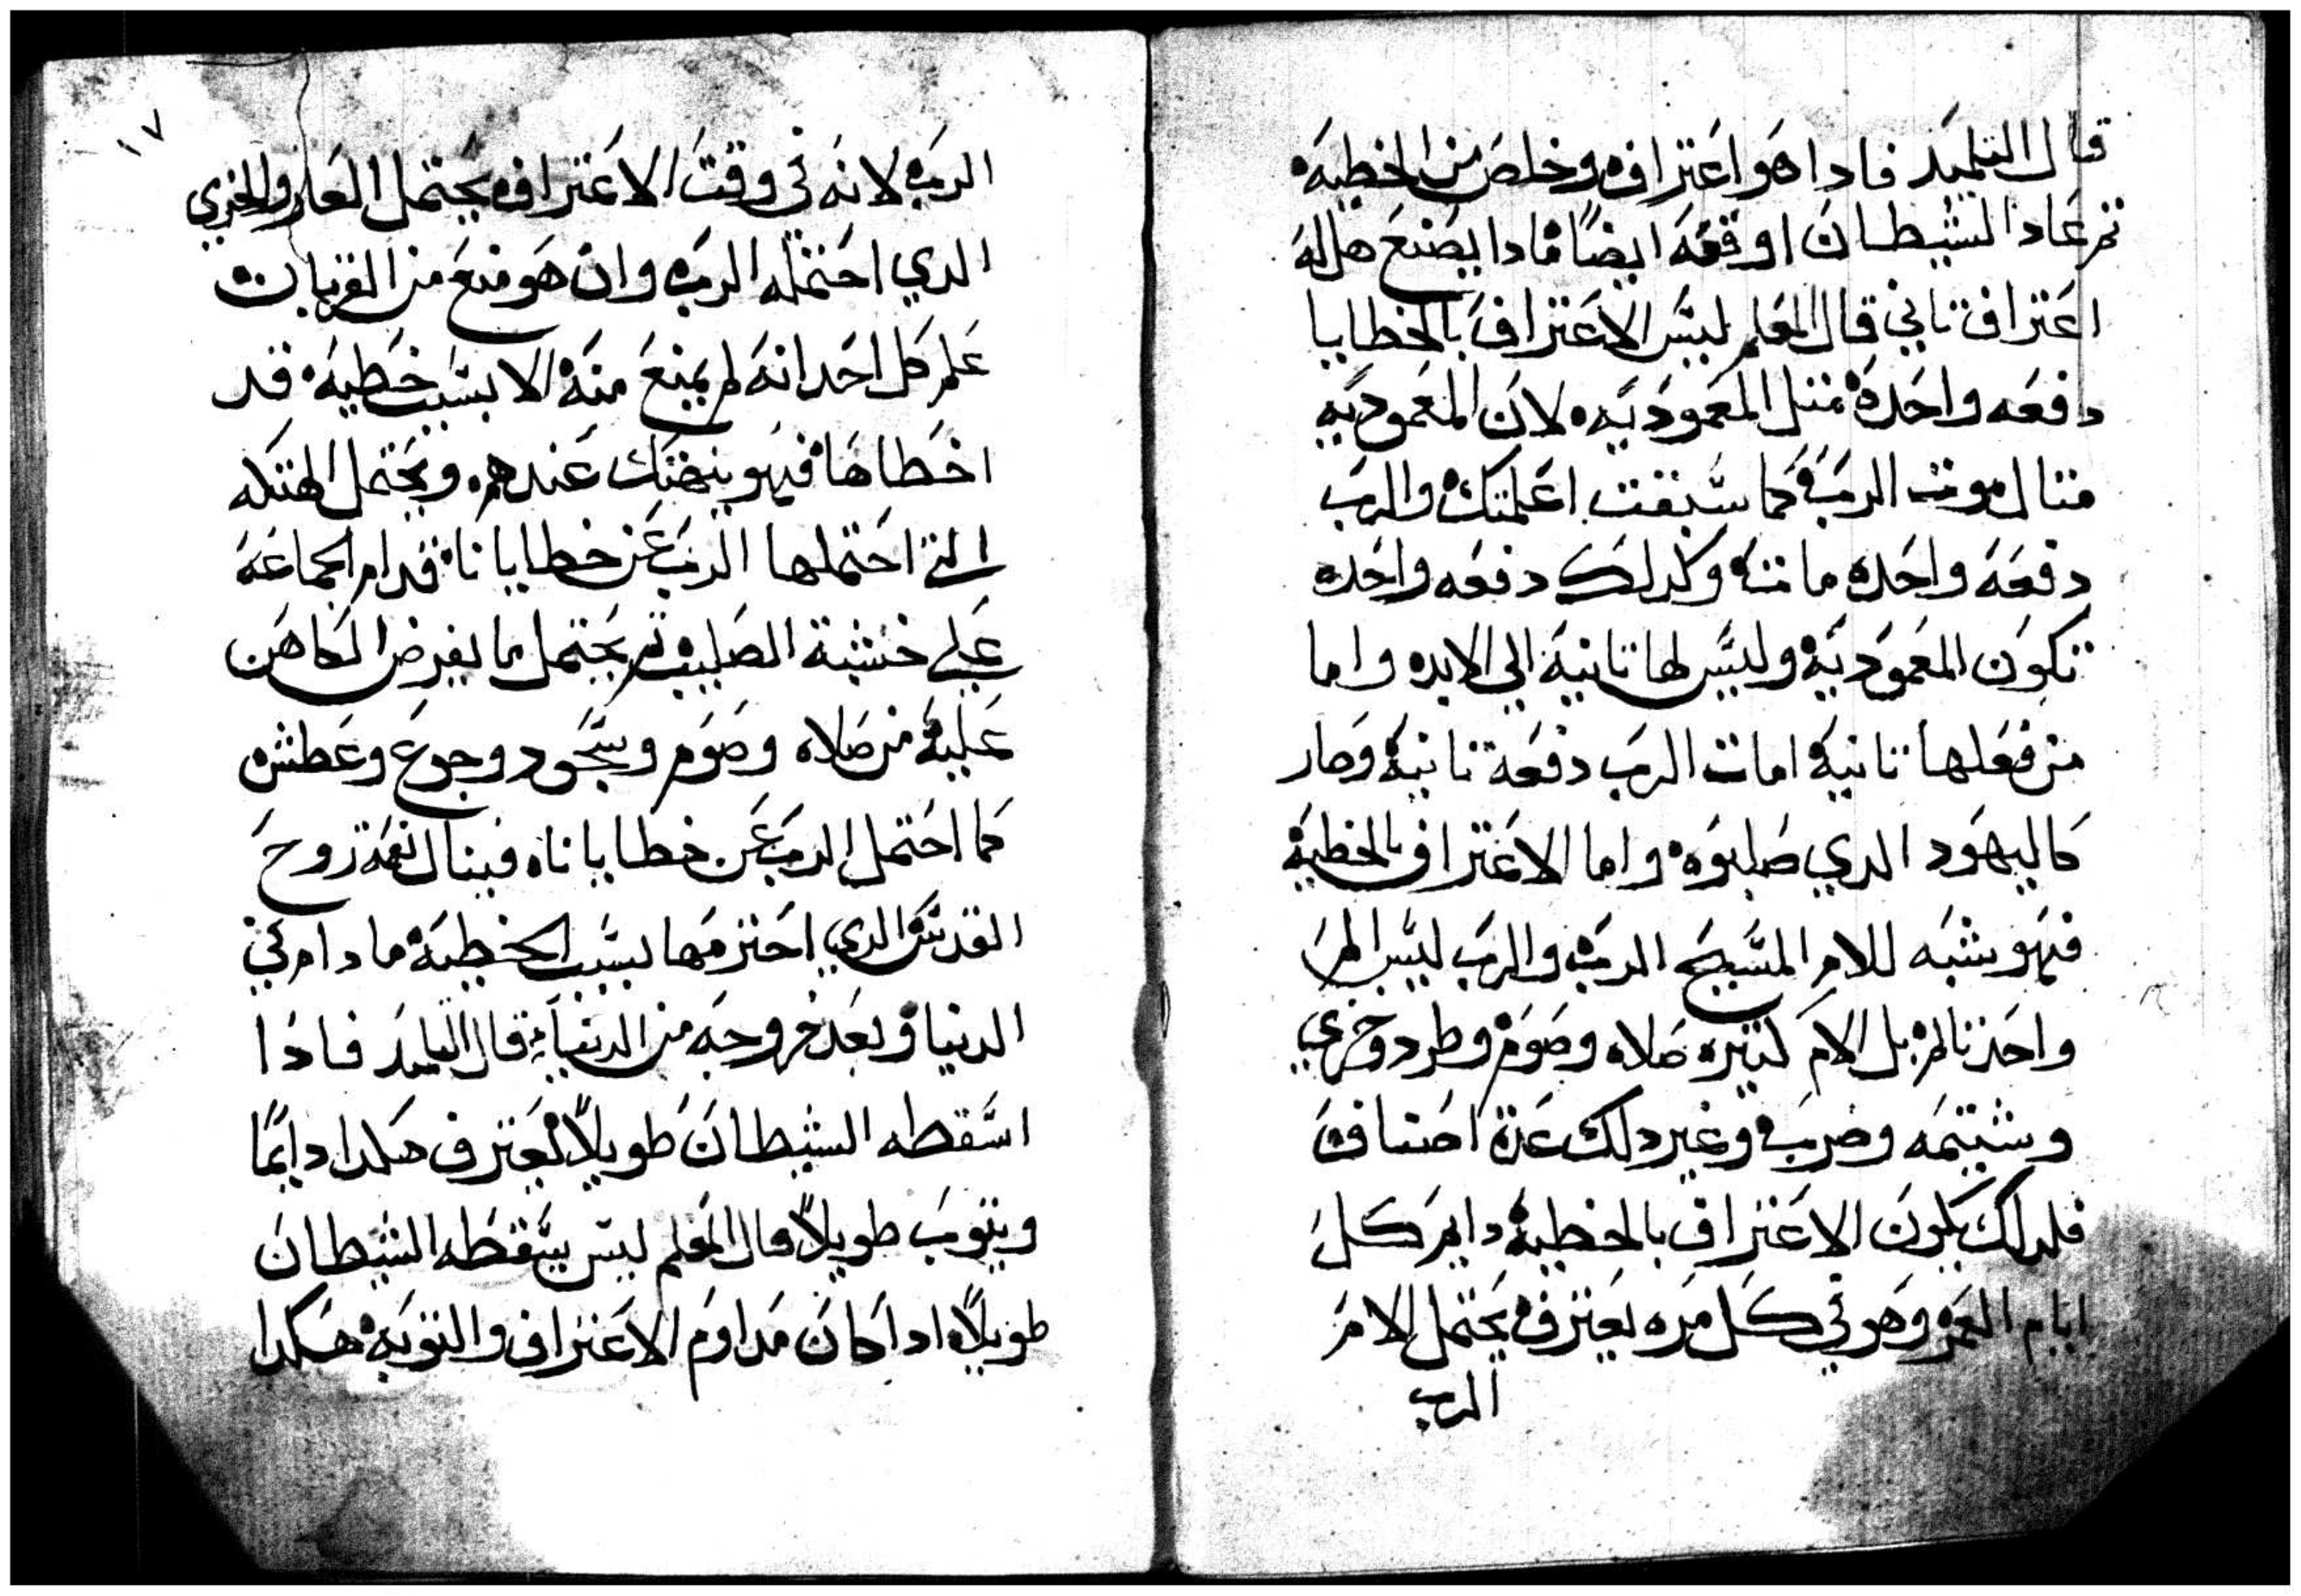 قال التلميد فادا هو اعترافه وخلص من الخطيه
تم عاد الشيطان اوقعه ايضًا مادا يصنع هل له
اعتراف تاني قال المعلم ليس الاعتراف بالخطايا
دفعه واحده متل المعموديه لان المعموديه
متال موت الرب كما سبقت اعلمتك والرب
دفعه واحده مات وكدلك دفعه واحده
تكون المعموديه وليس لها تانية الي الابد واما
من فعلها تانيه امات الرب دفعة تانيه وصار
كاليهود الدي صلبوه واما الاعتراف بالخطيه
فهو شبه للالم المسيح الرب والرب ليس الم
واحد تالم بل الام كتيره صلاه وصوم وطرد وخزي
وشتيمه وضرب وغير دلك عدة اصناف
فلدلك يكون الاعتراف بالخطيه دايم كل
ايام العمر وهو في كل مره يعترف يحتمل الام
الرب
١٧
الرب لانه في وقت الاعتراف يحتمل العار والخزي
الدي احتمله الرب وان هو منع من القربان
علم كل احد انه لم يمنع منه الا بسبب خطيه قد
اخطاها فهو ينهتك عندهم ويحتمل الهتكه
التي احتملها الرب عن خطايانا قدام الجماعه
علي خشبة الصليب تم يحتمل ما يفرض الكاهن
عليه من صلاه وصوم وسجود وجوع وعطش
كما احتمل الرب عن خطايانا فينال نعمة روح
القدس الدي احترمها بسبب الخطيه ما دام في
الدنيا وبعد خروجه من الدنيا قال التلميد فادا
اسقطه الشيطان طويلاً يعترف هكدا دايمًا
ويتوب طويلاً قال المعلم ليس يسقطه الشيطان
طويلاً ادا كان مداوم الاعتراف والتوبه هكدا